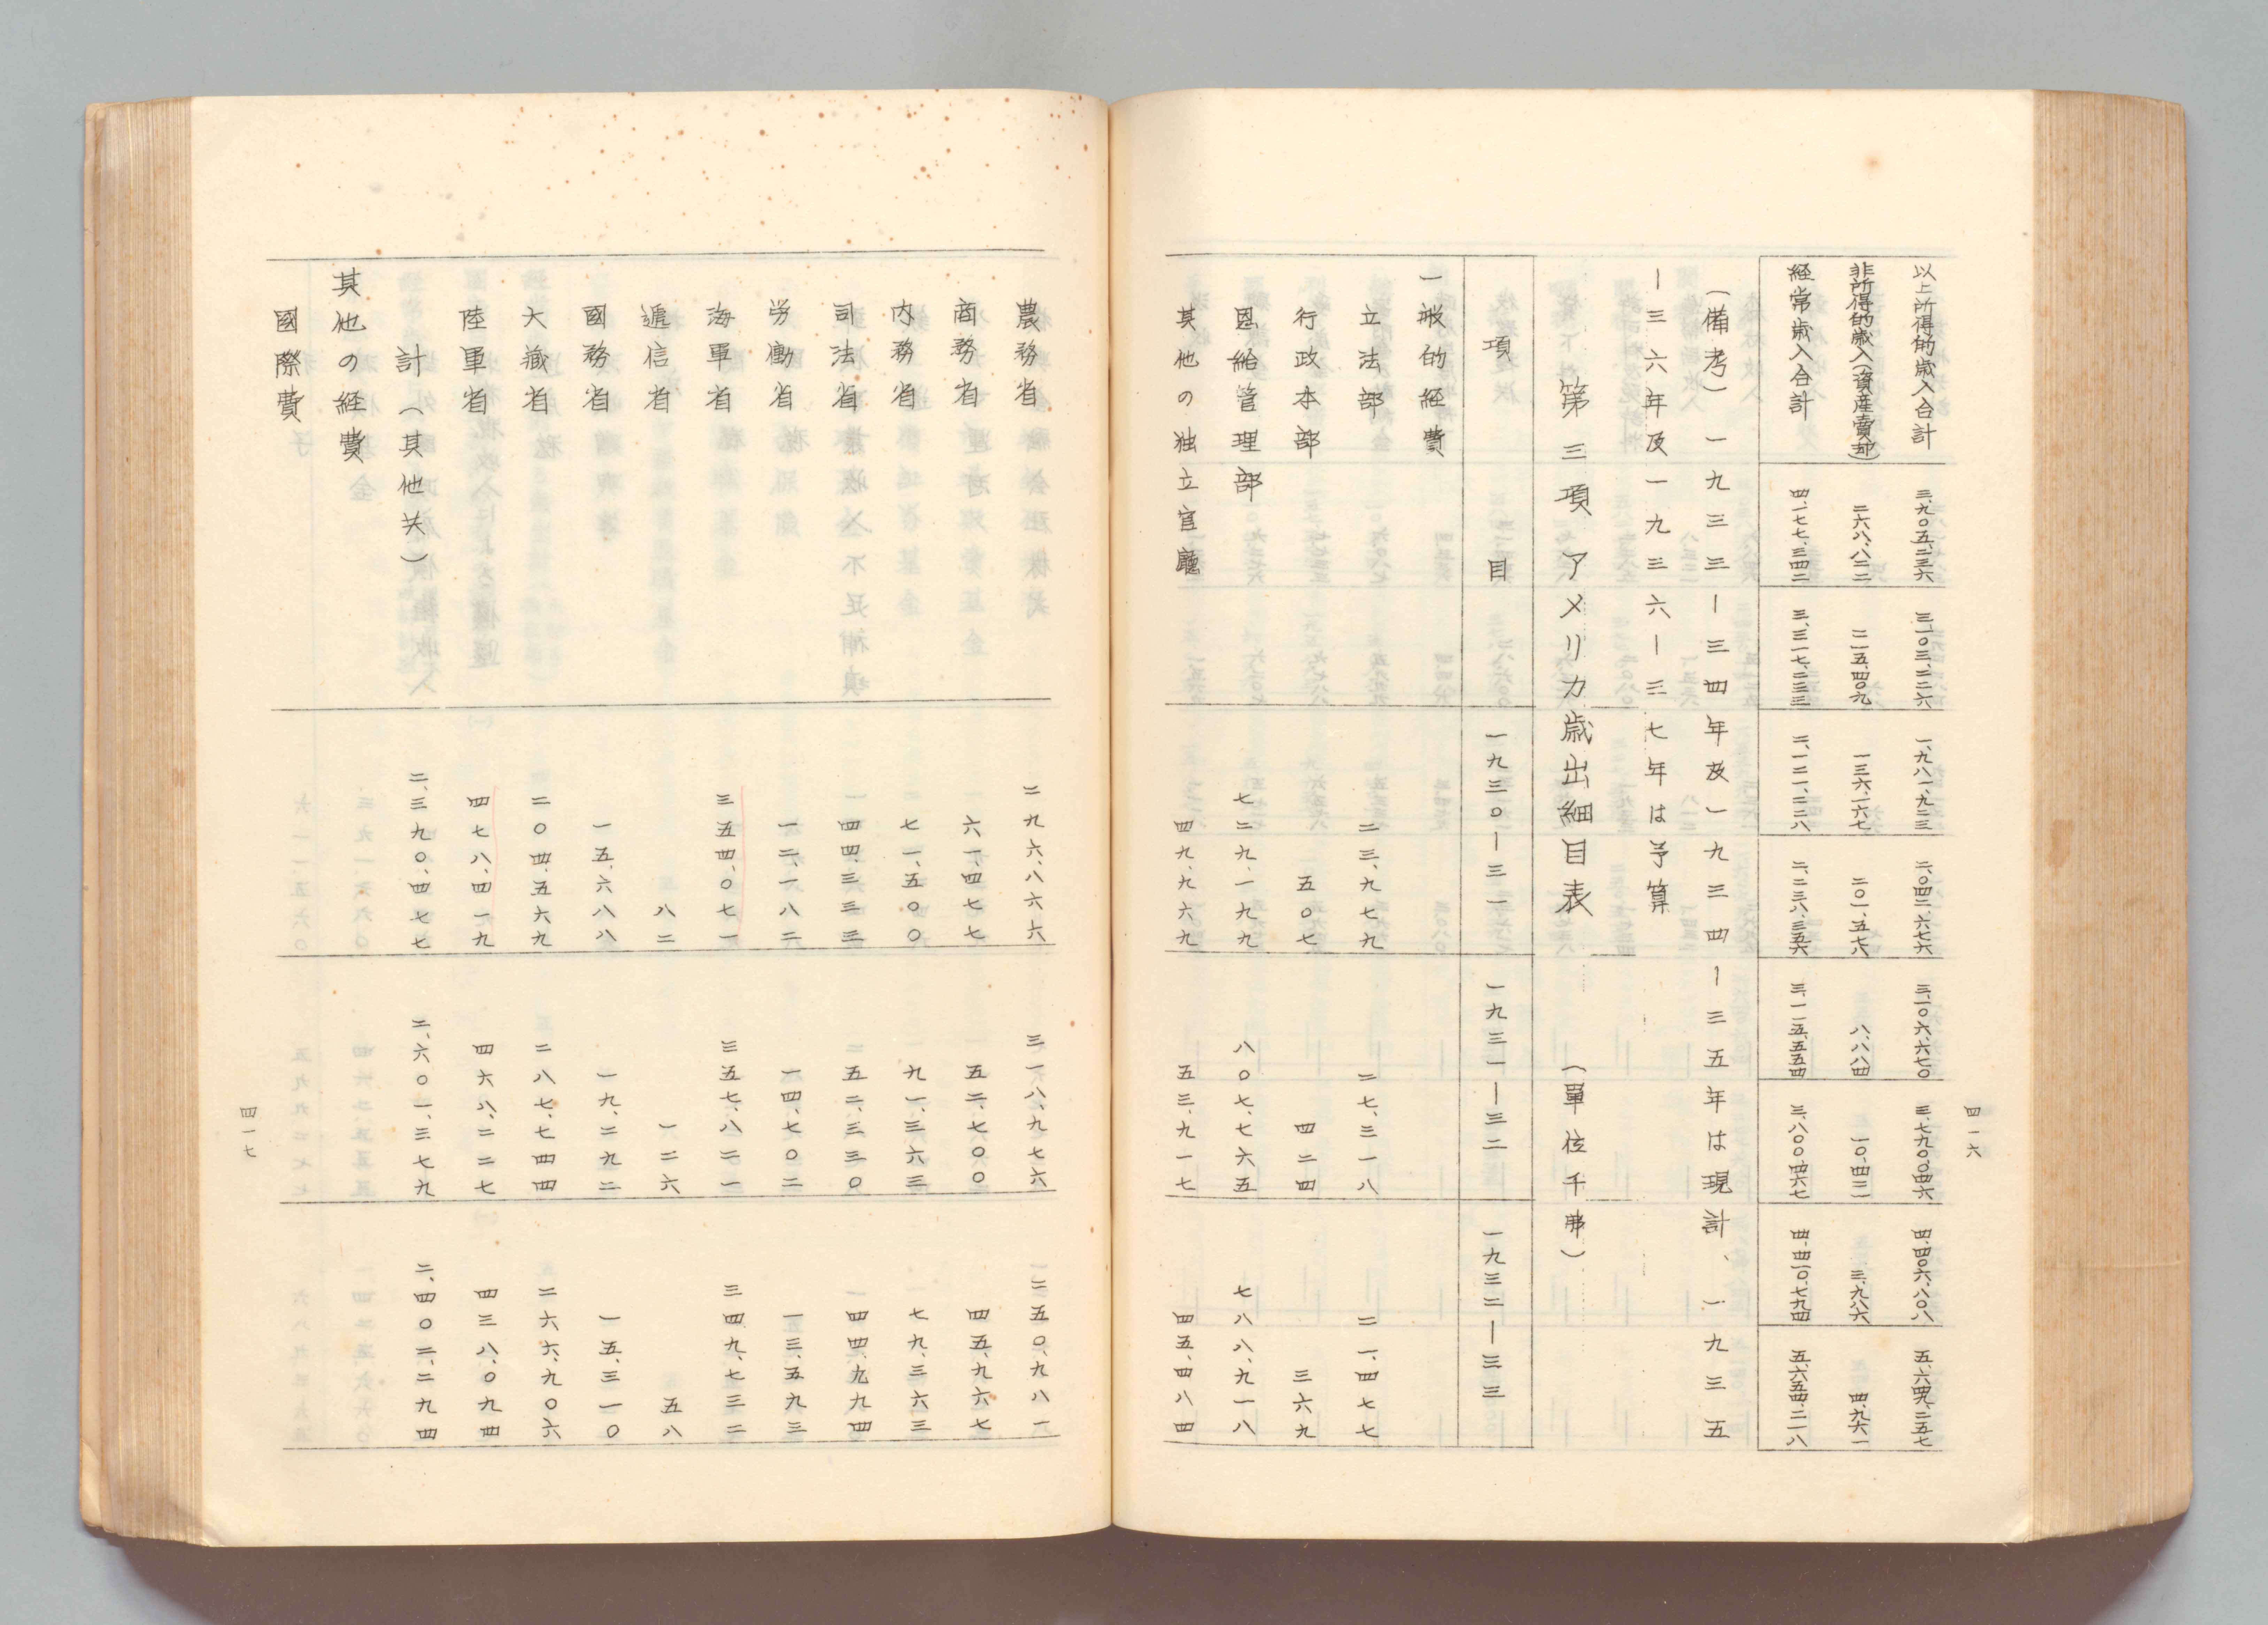 四一六
以上所得的歳入合計 三、九〇五、二三六 三、一〇三、二二六 一、九八一、九二三 二、〇四二、六七六 三、一〇六、六七〇 三、七九〇、〇四六 四、四〇六、八〇八 五、六四九、二五七
非所得的歳入(資産賣却) 二六八、八二二 二一五、四〇九 一三六、一六七 二〇一、五七六 八、八八四 一〇、四二一 三、九八六 四、九六一
経常歳入合計 四、一七七、三四二 三、三一七、二三三 二、一二一、二二八 二、二三八、三五六 三、一一五、五五四 三、八〇〇、四六七 四、四一〇、七九四 五、六五四、二一八
(備考) 一九三三ー三四年及一九三四ー三五年は現計、一九三五
ー三六年及一九三六ー三七年は予算
第三項 アメリカ歳出細目表 (單位千弗)
項 目 一九三〇ー三一 一九三一ー三二 一九三二ー三三
一般的経費
立法部 二三、九七九 二七、三一八 二一、四七七
行政本部 五〇七 四二四 三六九
恩給管理部 七二九、一九九 八〇七、七六五 七八八、九一八
其他の独立官廳 四九、九六九 五三、九一七 四五、四八四
農務省 二九六、八六六 三一八、九七六 二五〇、九八一
商務省 六一、四七七 五二、七〇〇 四五、九六七
内務省 七一、五〇〇 九一、三六三 七九、三六三
司法省 四四、三三三 五二、三三〇 四四、九九四
労働省 一二、一八二 一四、七〇二 一三、五九三
海軍省 三五四、〇七一 三五七、八二一 三四九、七三二
遞信省 八二 一二六 五八
國務省 一五、六八八 一九、二九二 一五、三一〇
大藏省 二〇四、五六九 二八七、七四四 二六六、九〇六
陸軍省 四七八、四一九 四六八、二二七 四三八、〇九四
計(其他共) 二、三九〇、四七七 二、六〇一、三七九 二、四〇二、二九四
其他の経費
國際費
四一七